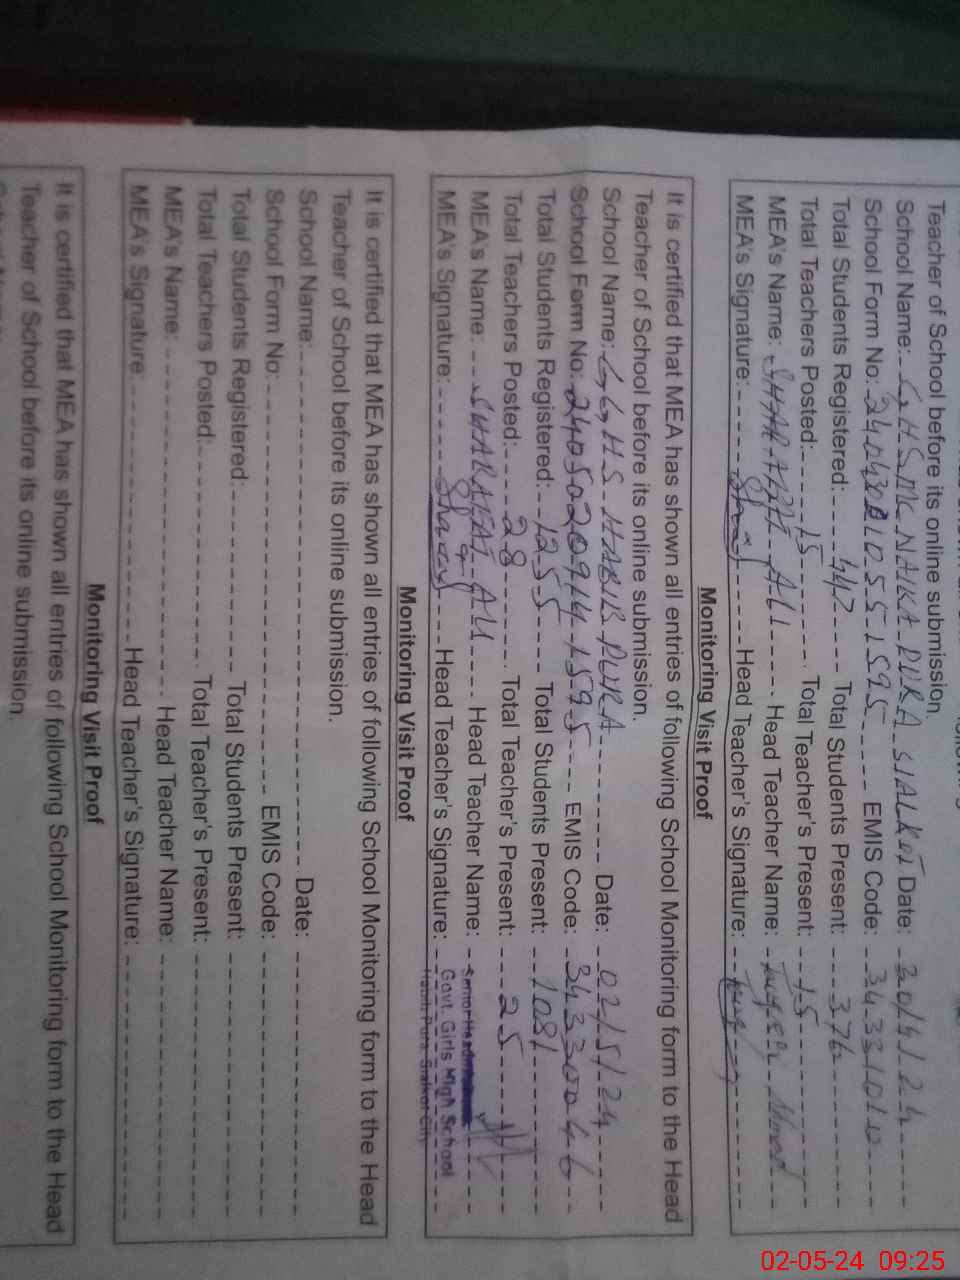 Teacher of School before its online submission.
School Name: GHS MC NAIKA PURA SIALKOT Date: 30/4/24
School Form No: EMIS Code:
Total Students Registered: 442 Total Students Present: 376
Total Teachers Posted: 15 Total Teacher's Present: 15
MEA's Name: SHARAFAT ALI Head Teacher Name:
MEA's Signature: Head Teacher's Signature:
Monitoring Visit Proof
It is certified that MEA has shown all entries of following School Monitoring form to the Head
Teacher of School before its online submission.
School Name: G,G,HS HABIB PURA Date: 02/5/24
School Form No: EMIS Code: 34330046
Total Students Registered: 1255 Total Students Present: 1081
Total Teachers Posted: 28 Total Teacher's Present: 25
MEA's Name: SHARAFAT ALI Head Teacher Name: Senior
MEA's Signature: Head Teacher's Signature: Govt. Girls High School
Habib Pura, Sialkot City
Monitoring Visit Proof
It is certified that MEA has shown all entries of following School Monitoring form to the Head
Teacher of School before its online submission.
School Name: Date:
School Form No: EMIS Code:
Total Students Registered: Total Students Present:
Total Teachers Posted: Total Teacher's Present:
MEA's Name: Head Teacher Name:
MEA's Signature: Head Teacher's Signature:
Monitoring Visit Proof
It is certified that MEA has shown all entries of following School Monitoring form to the Head
Teacher of School before its online submission.
02-05-24 09:25